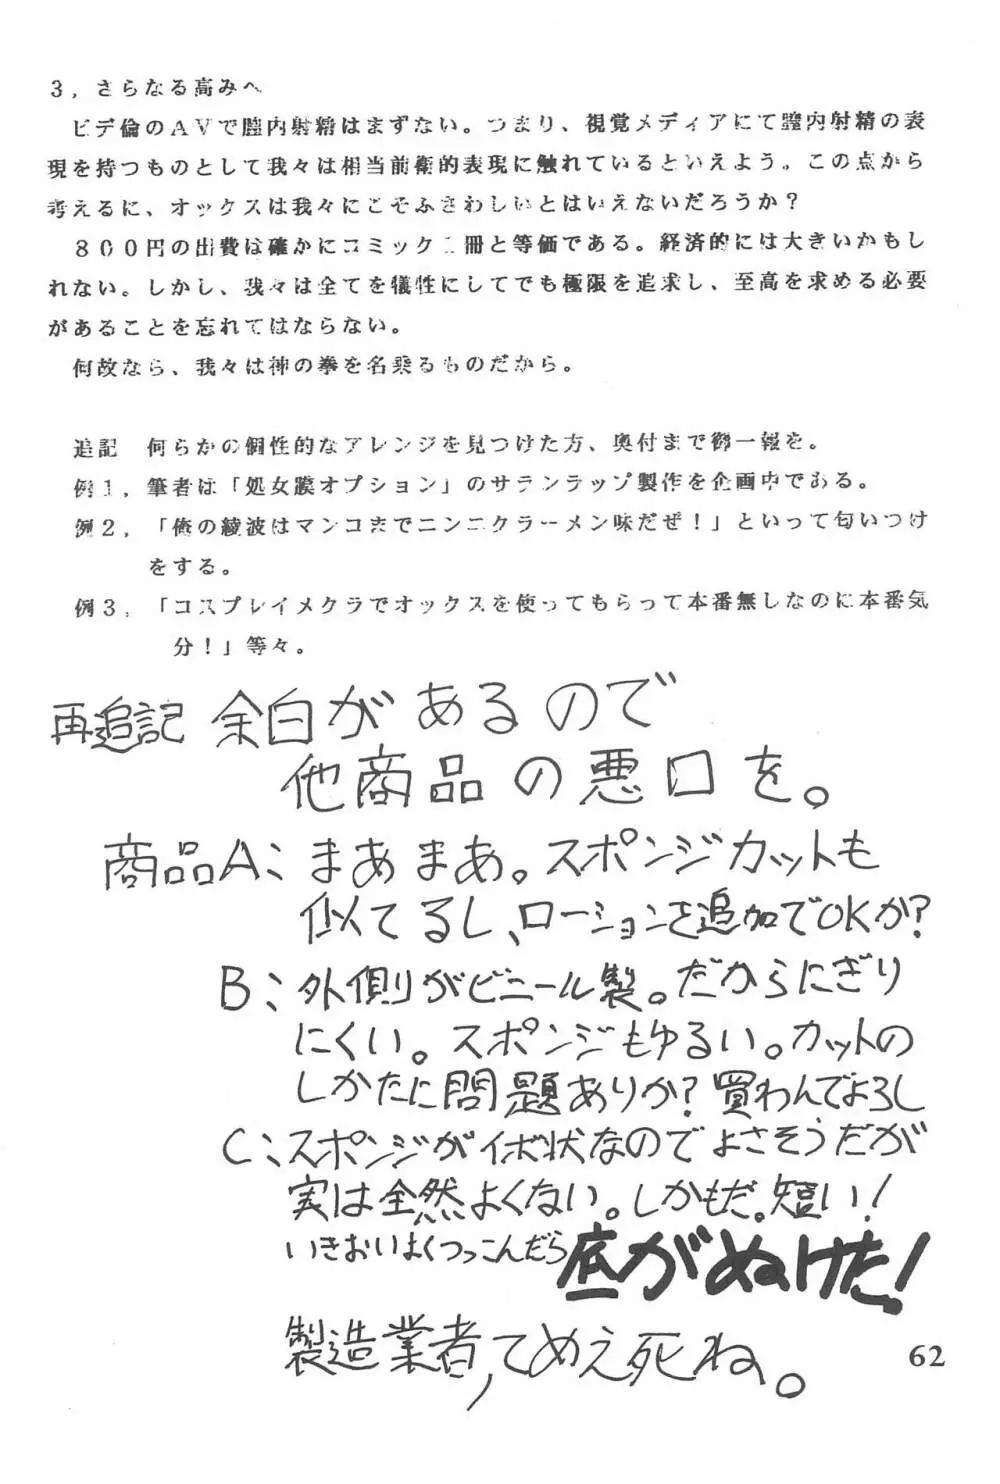 3,さらなる高みへ
ビデ倫のAVで膣内射精はまずない。つまり、視覚メディアにて膣内射精の表
現を持つものとして我々は相当前衛的表現に触れているといえよう。この点から
考えるに、オックスは我々にこそふさわしいとはいえないだろうか?
800円の出費は確かにコミック二冊と等価である。経済的には大きいかもし
れない。しかし、我々は全てを犠牲にしてでも極限を追求し、至高を求める必要
があることを忘れてはならない。
何故なら、我々は神の拳を名乗るものだから。
追記 何らかの個性的なアレンジを見つけた方、奥付まで御一報を。
例1,筆者は「処女膜オプション」のサランラップ製作を企画中である。
例2,「俺の綾波はマンコまでニンニクラーメン味だぜ!」といって匂いつけ
をする。
例3,「コスプレイメクラでオックスを使ってもらって本番無しなのに本番気
分!」等々。
再追記 余白があるので
他商品の悪口を。
商品A:まあまあ。スポンジカットも
似てるし、ローションを追加でOKか?
B:外側がビニール製。だからにぎり
にくい。スポンジもゆるい。カットの
しかたに問題ありか?買わんでよろし
C:スポンジがイボ状なのでよさそうだが
実は全然よくない。しかもだ。短い!
いきおいよくつっこんだら底がぬけた!
製造業者,てめえ死ね。
62